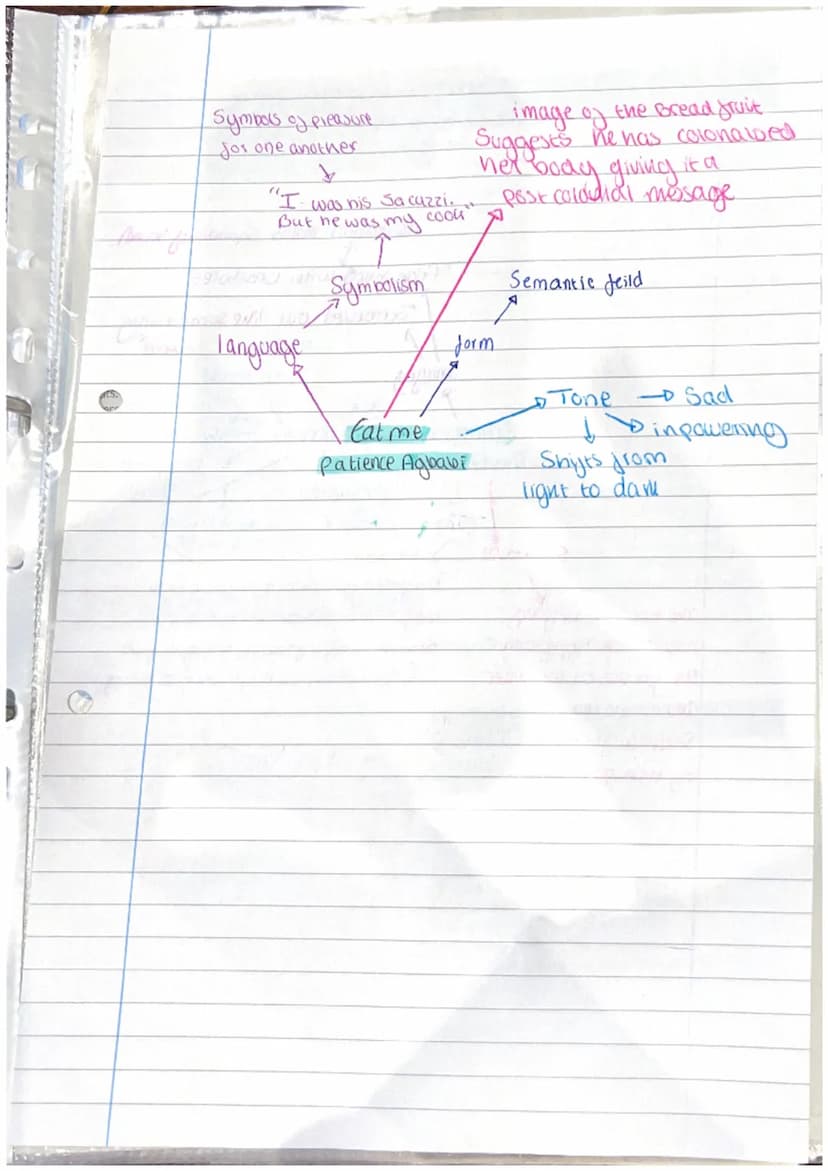 Symbols of pleasure
for one another
"I was his Jacuzzi.
But he was my cook"
Symbolism
language
image of the Bread fruit
Suggests he has colonalised
her body giving it a
post colonial message
Semantic feild
form
Eat me
Patience Agbabi
Tone → Sad
inpowering
Shifts from
light to dark